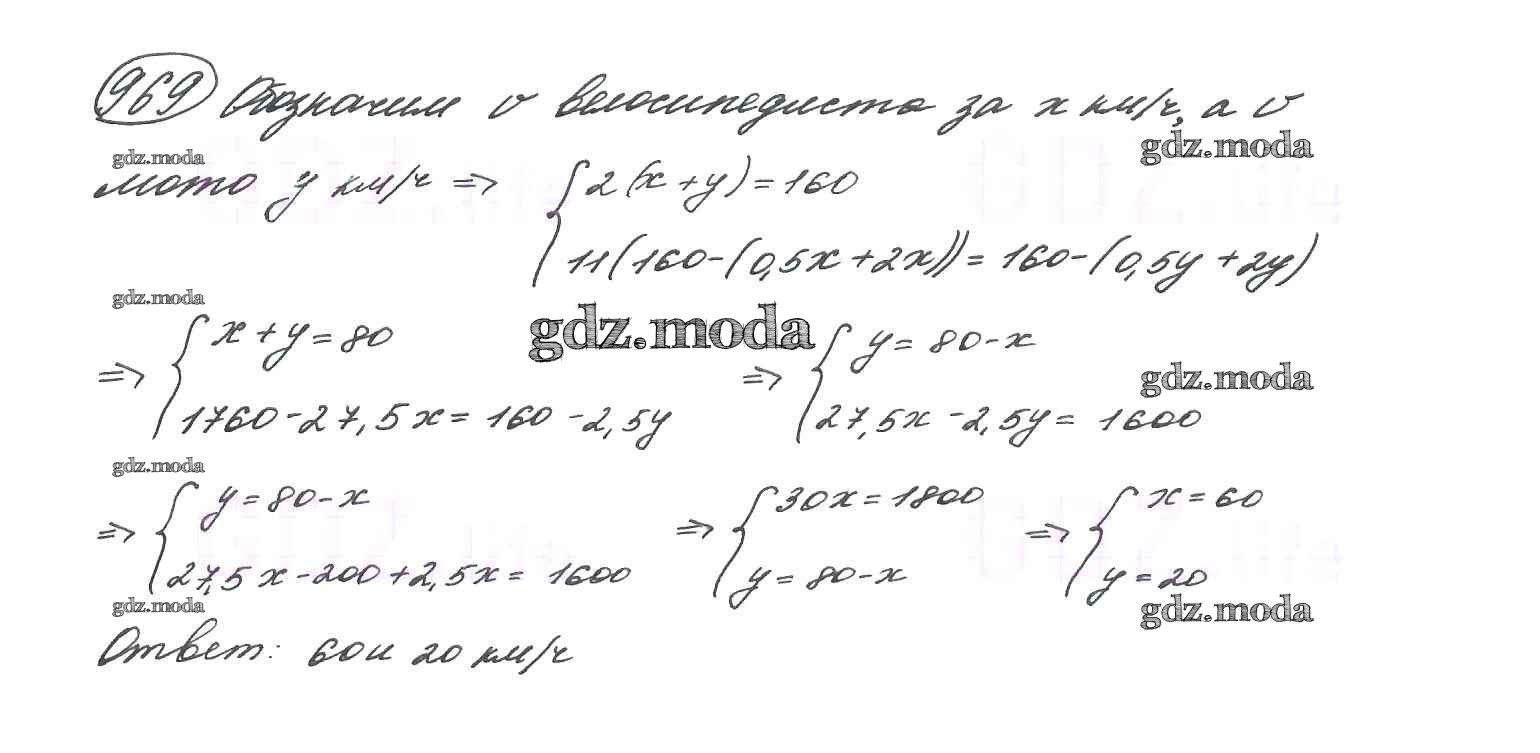 969 Обозначим v велосипедиста за x км/ч, а v
gdz.moda gdz.moda
мото y км/ч => { 2(x+y)=160
11(160-(0,5x+2x))=160-(0,5y+2y)
gdz.moda
=> { x+y=80 gdz.moda => { y=80-x
gdz.moda
1760-27,5x=160-2,5y 27,5x-2,5y=1600
gdz.moda
=> { y=80-x => { 30x=1800 => { x=60
27,5x-200+2,5x=1600 y=80-x y=20
gdz.moda gdz.moda
Ответ: 60 и 20 км/ч